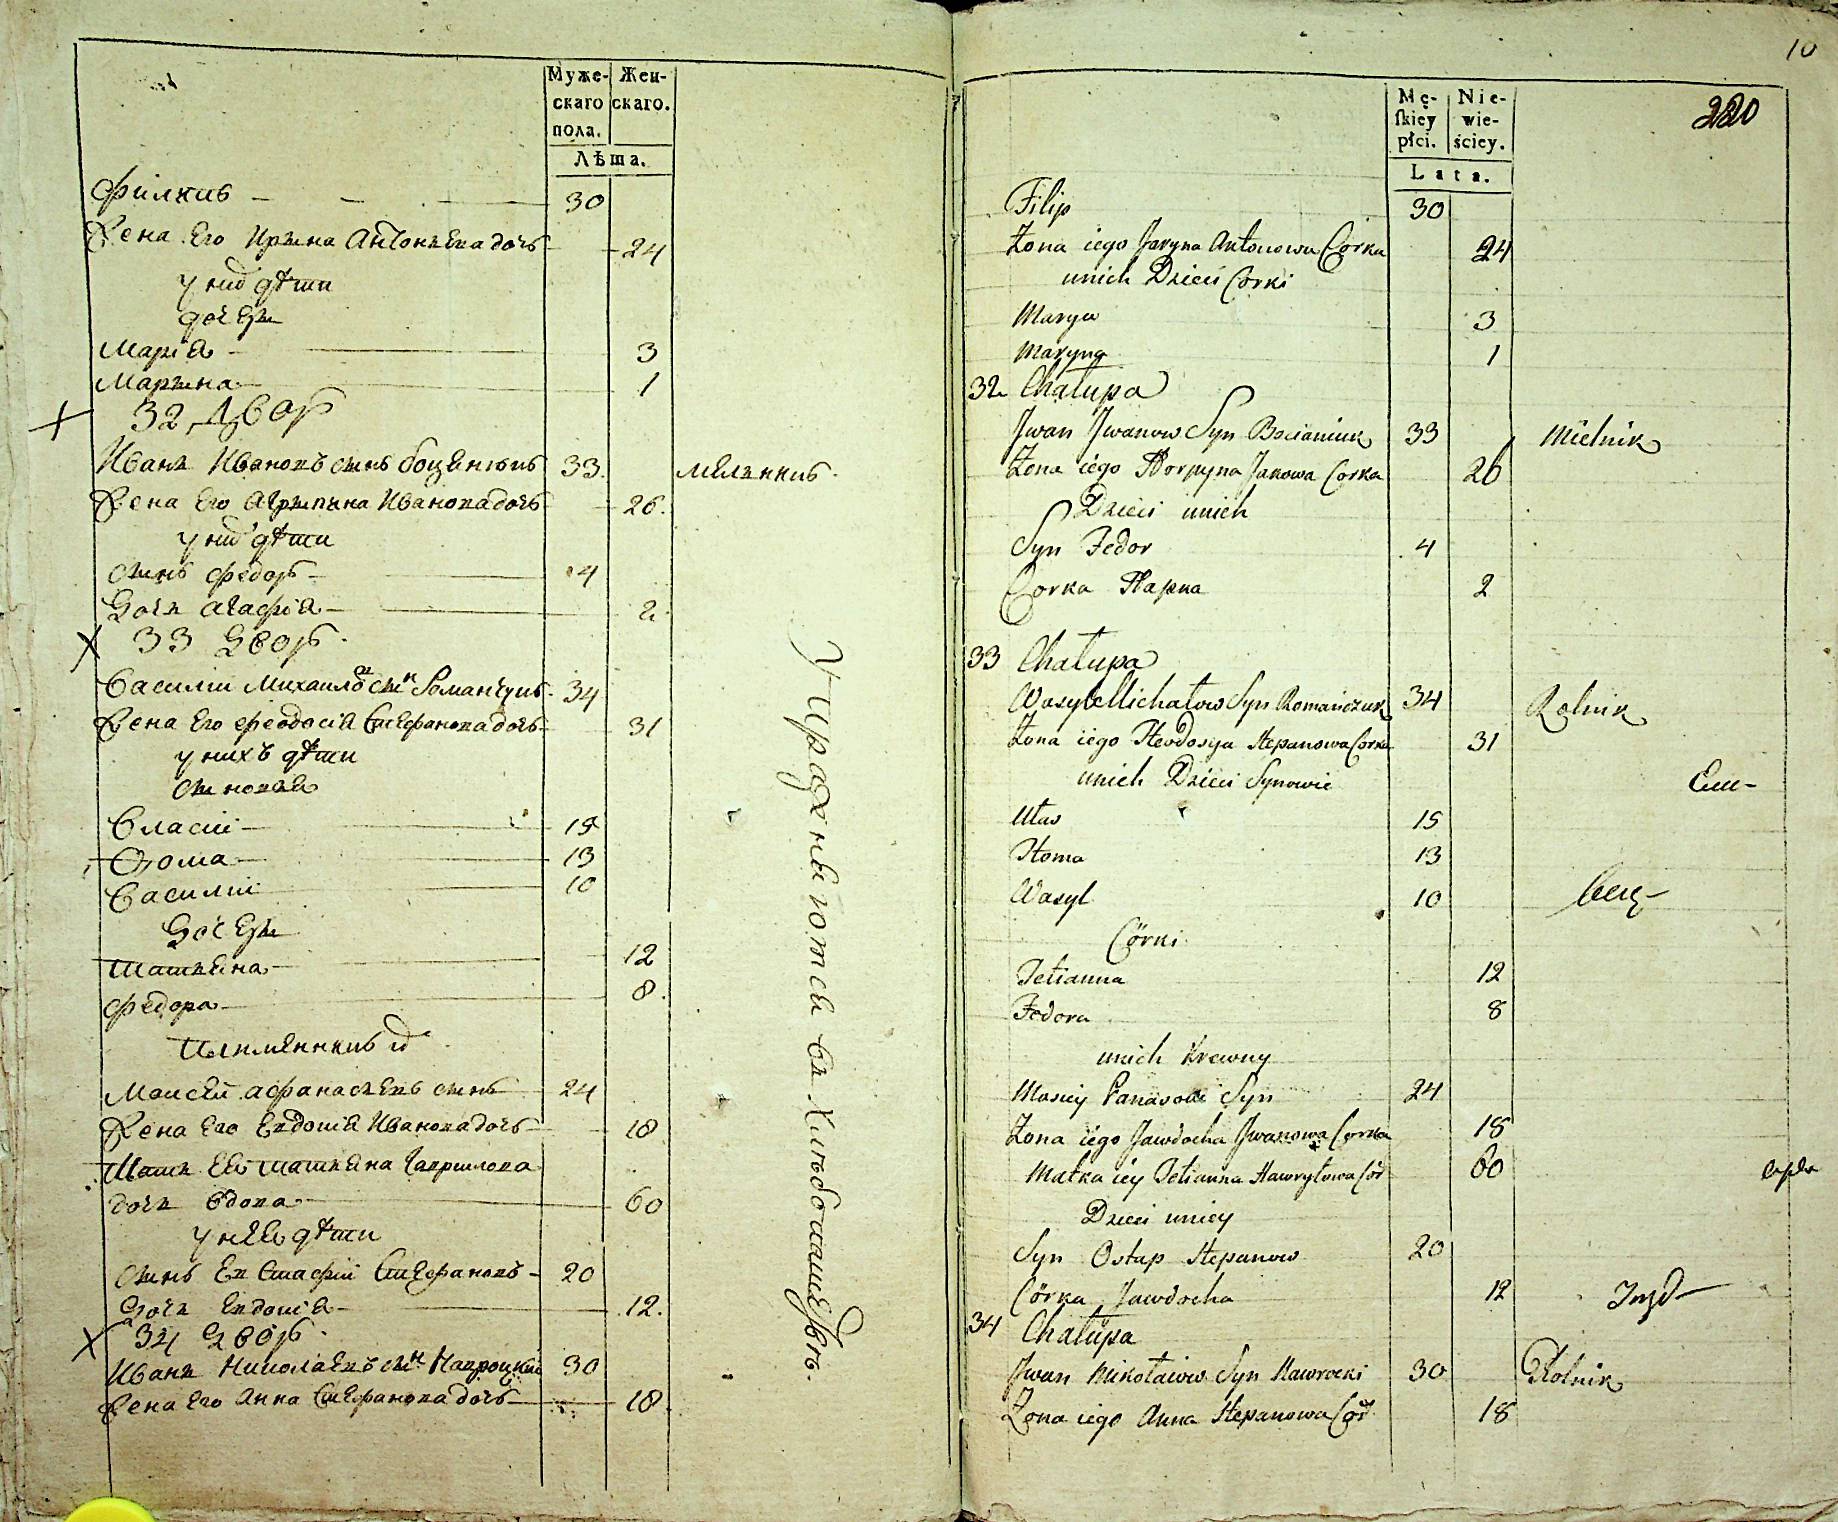 Муже-
скаго
пола.
Жен-
скаго.
Лѣта.
Филипъ 30
Жена Его Ирына Антоньева дочь 24
у нихъ дѣти
дочеры
Марія 3
Марына 1
32 Дворъ
Иванъ Ивановъ сынъ Боцянюкъ 33 мельникъ
Жена Его Агрыпына Иванова дочь 26
у нихъ дѣти
сынъ Федоръ 4
Дочь Агафія 2
33 Дворъ
Василій Михайловъ сынъ Романчукъ 34
Жена Его Феодосія Стефанова дочь 31
у нихъ дѣти
сыновья
Власій 15
Ѳома 13
Василій 10
Дочеры
Татьяна 12
Федора 8
Племенникъ их
Моисей Афанасьевъ сынъ 24
Жена Его Евдокія Иванова дочь 18
Мать Ея Татьяна Гаврылова
дочь вдова 60
у нея дѣти
сынъ Евстафій Стефановъ 20
Дочь Евдокія 12
34 Дворъ
Иванъ Николаевъ сынъ Навроцкій 30
Жена Его Анна Стефанова дочь 18
Упражняются въ Хлѣбопашествѣ
10
220
Mę-
skiey
płci.
Nie-
wie-
ściey.
Lata.
Filip 30
Żona iego Jaryna Antonowa Corka 24
unich Dzieci Corki
Marya 3
Maryna 1
32 Chałupa
Jwan Jwanow Syn Bocianiuk 33 Mielnik
Żona iego Horpyna Janowa Corka 26
Dzieci unich
Syn Fedor 4
Corka Hapka 2
33 Chałupa
Wasyl Michałow Syn Romańczuk 34 Rolnik
Żona iego Heodosya Stepanowa Corka 31
unich Dzieci Synowie
Ułas 15
Homa 13
Wasyl 10
Córki
Tetianna 12
Fedora 8
unich Krewny
Mosiey Panasow Syn 24
Żona iego Jawdocha Jwanowa Corka 18
Matka iey Tetianna Hawryłowa Cór 60
Dzieci uniey
Syn Ostap Stepanow 20
Córka Jawdocha 12
34 Chałupa
Jwan Mikołaiow Syn Nawrocki 30 Rolnik
Żona iego Anna Stepanowa Cór 18